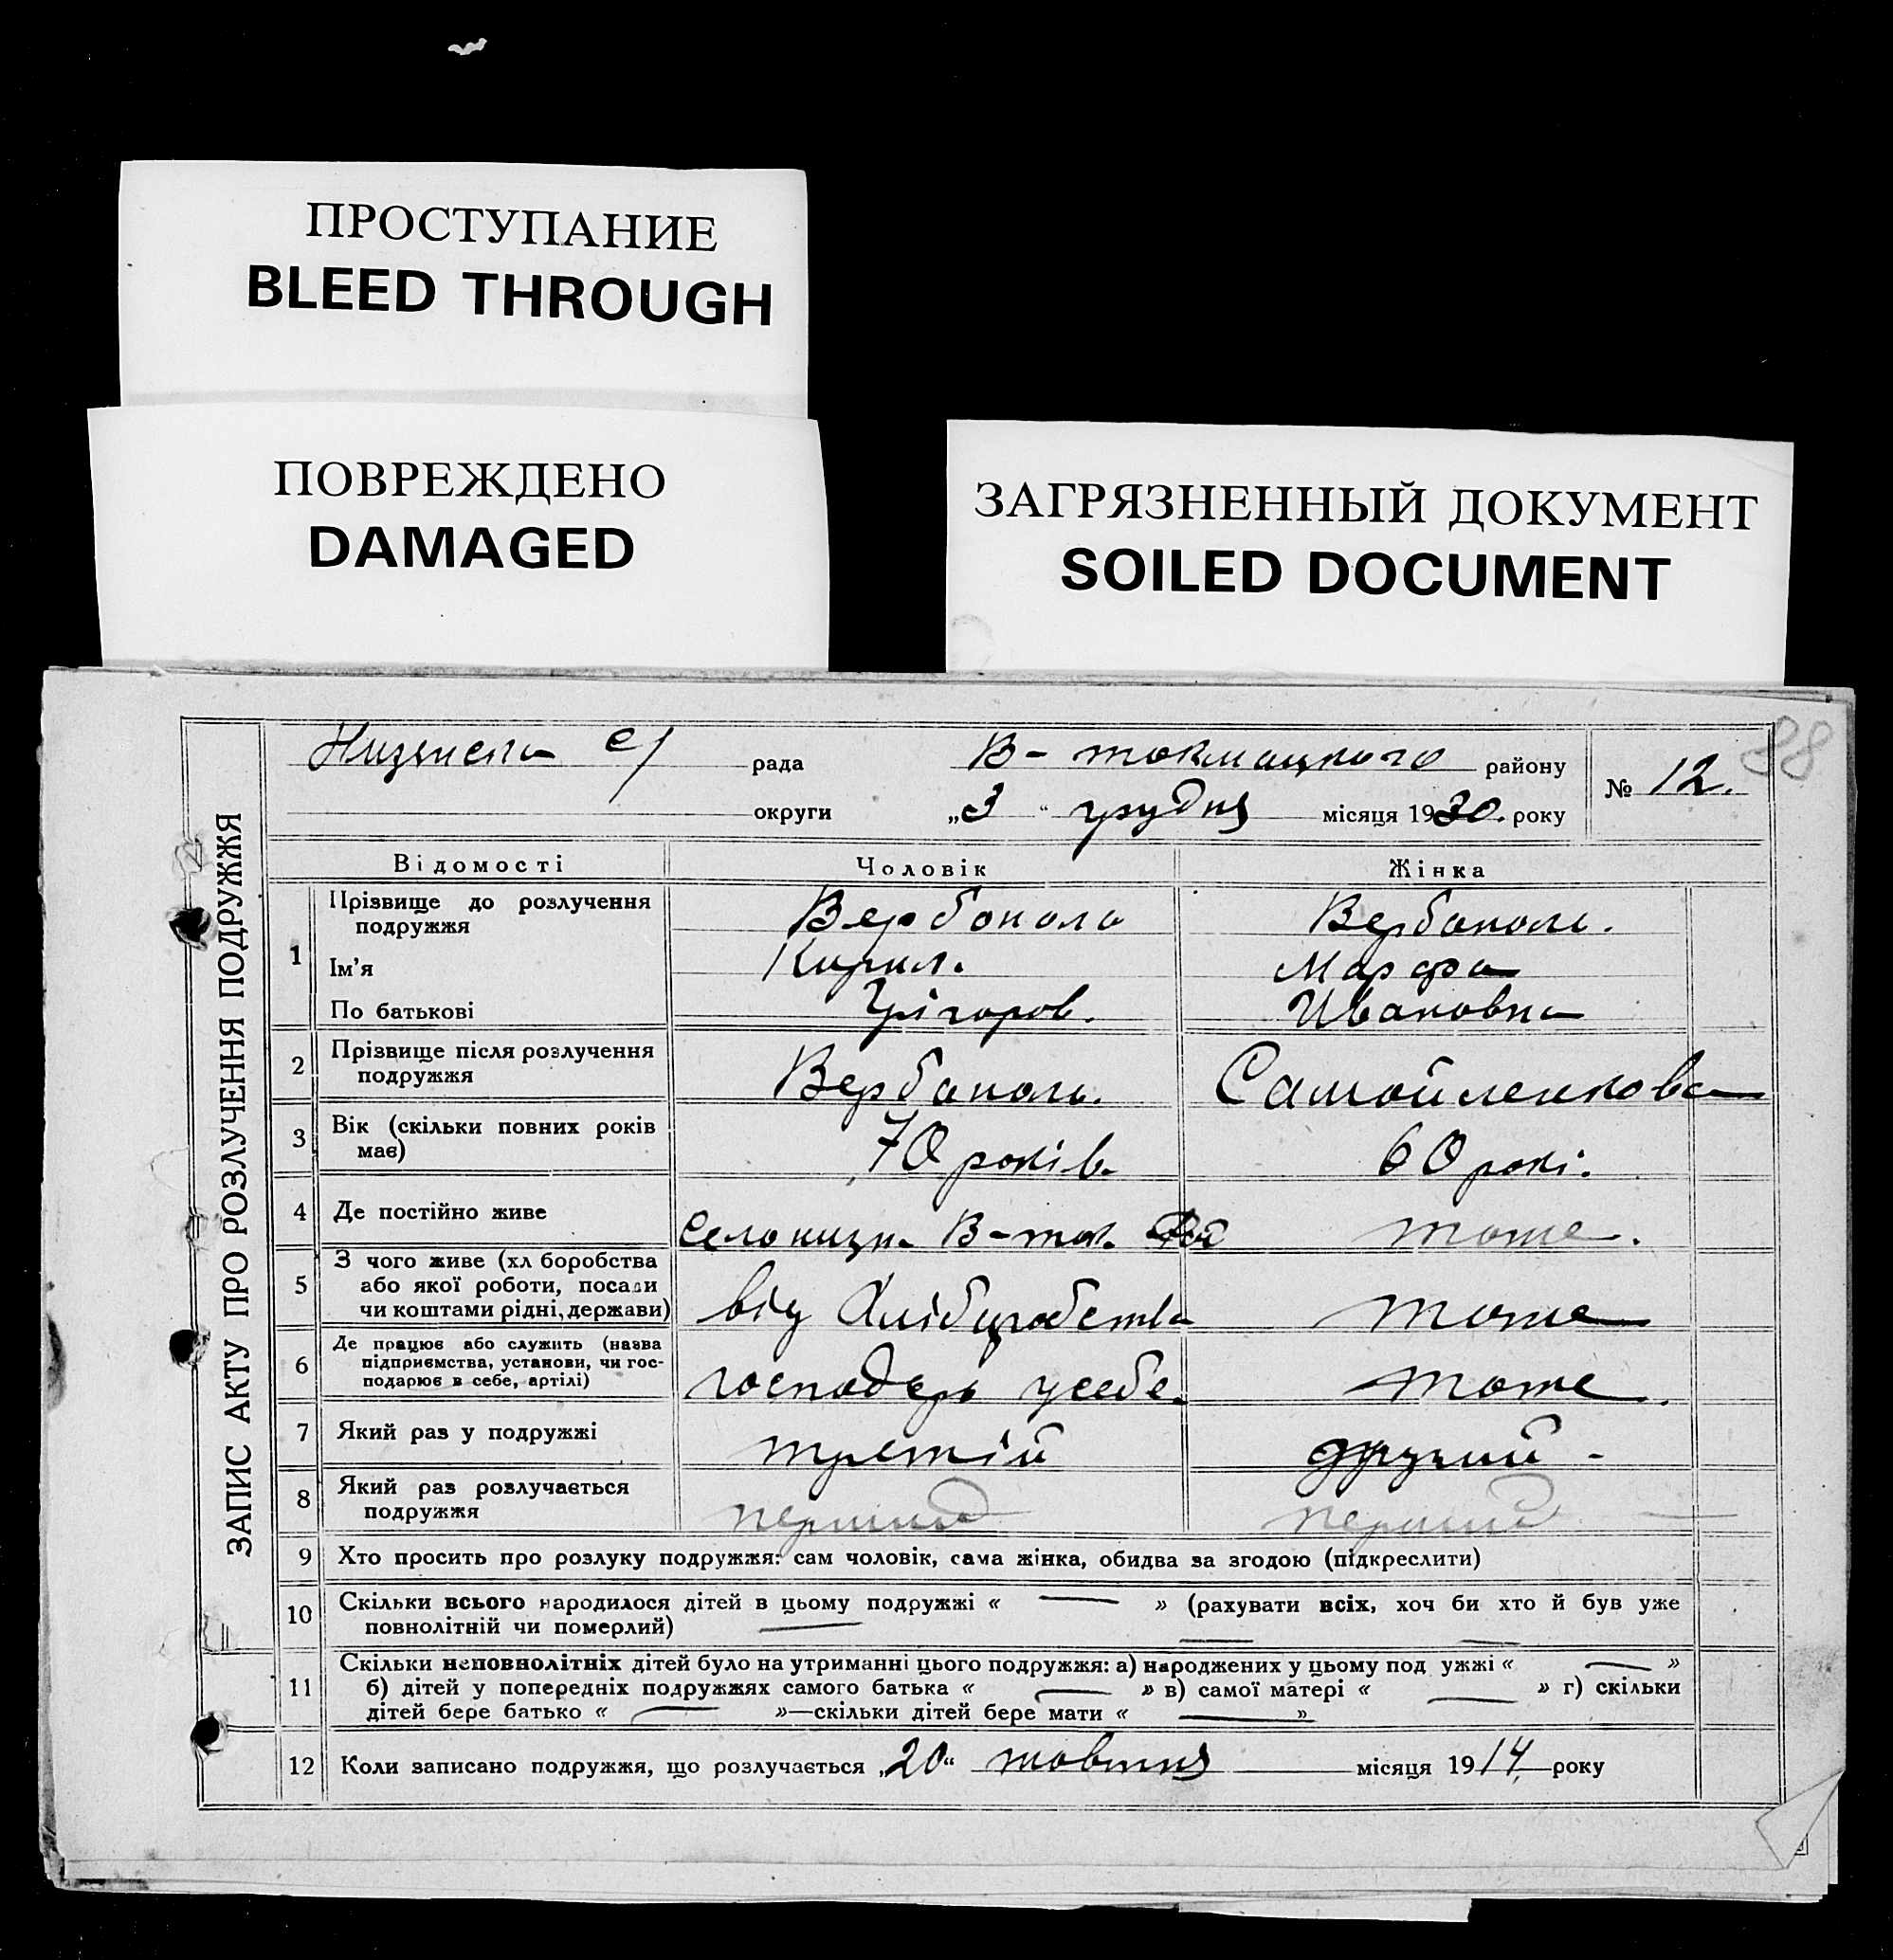 ПРОСТУПАНИЕ
BLEED THROUGH
ПОВРЕЖДЕНО
DAMAGED
ЗАГРЯЗНЕННЫЙ ДОКУМЕНТ
SOILED DOCUMENT
88
ЗАПИС АКТУ ПРО РОЗЛУЧЕННЯ ПОДРУЖЖЯ
с/ рада В-токмацького району № 12.
округи „3“ грудня місяця 1930. року
Відомості Чоловік Жінка
1 Прізвище до розлучення подружжя Верб Верб
Ім'я Кирил. Марфа
По батькові Григоров. Ивановна
2 Прізвище після розлучення подружжя Верб Самойленкова
3 Вік (скільки повних років має) 70 років. 60 рокі.
4 Де постійно живе Село В-ток. тоже.
5 З чого живе (хл боробства або якої роботи, посади чи коштами рідні, держави) від Хліборобства тоже
6 Де працює або служить (назва підприємства, установи, чи господарює в себе, артілі) господарь усебе. тоже.
7 Який раз у подружжі третій другий -
8 Який раз розлучається подружжя перший перший
9 Хто просить про розлуку подружжя: сам чоловік, сама жінка, обидва за згодою (підкреслити)
10 Скільки всього народилося дітей в цьому подружжі « — » (рахувати всіх, хоч би хто й був уже
повнолітній чи померлий)
11 Скільки неповнолітніх дітей було на утриманні цього подружжя: а) народжених у цьому под ужжі « — »
б) дітей у попередніх подружжях самого батька « — » в) самої матері « — » г) скільки
дітей бере батько « — »—скільки дітей бере мати « — »
12 Коли записано подружжя, що розлучається „20“ жовтня місяця 1914 року